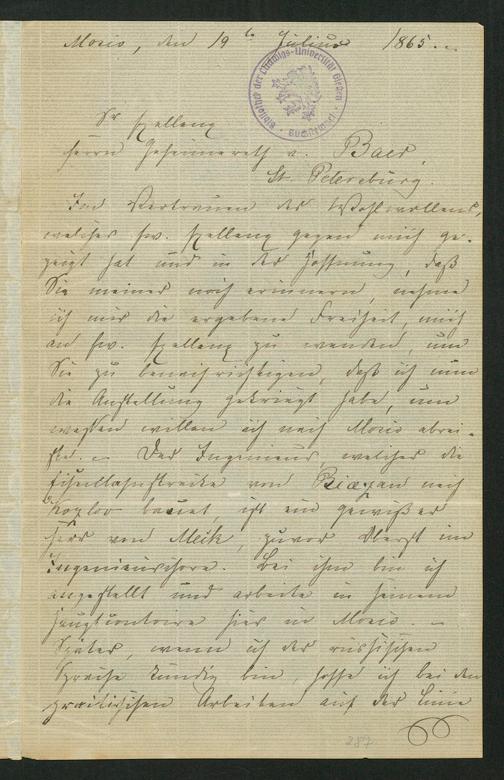 Mosco, den 19ten Julius 1865.
Bibliothek der Ludwigs-Universität Giessen
Buchstempel
Sr Excellenz
Herrn Geheimerath v. Baer,
St. Petersburg.
Im Vertrauen des Wohlwollens,
welches Ew. Excellenz gegen mich ge-
zeigt hat und in der Hoffnung, daß
Sie meiner noch erinnern, nehme
ich mir die ergebene Freiheit, mich
an Ew. Excellenz zu wenden, um
Sie zu benachrichtigen, daß ich nun
die Anstellung gekriegt habe, um
wessen willen ich nach Mosco abrei-
ste. – Der Ingenieur, welcher die
Eisenbahnstrecke von Riazan nach
Kozlov bauet, ist ein gewißer
Herr von Mekk, zuvor Oberst im
Ingenieurchore. Bei ihm bin ich
angestellt und arbeite in seinem
Hauptcontoire hier in Mosco. –
Später, wenn ich der russischen
Sprache kundig bin, hoffe ich bei den
practischen Arbeiten auf der Linie
287